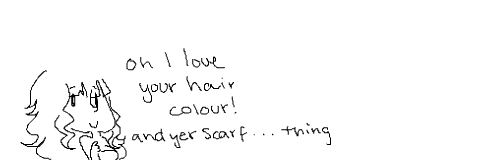 oh I love
your hair
colour!
and yer scarf... thing